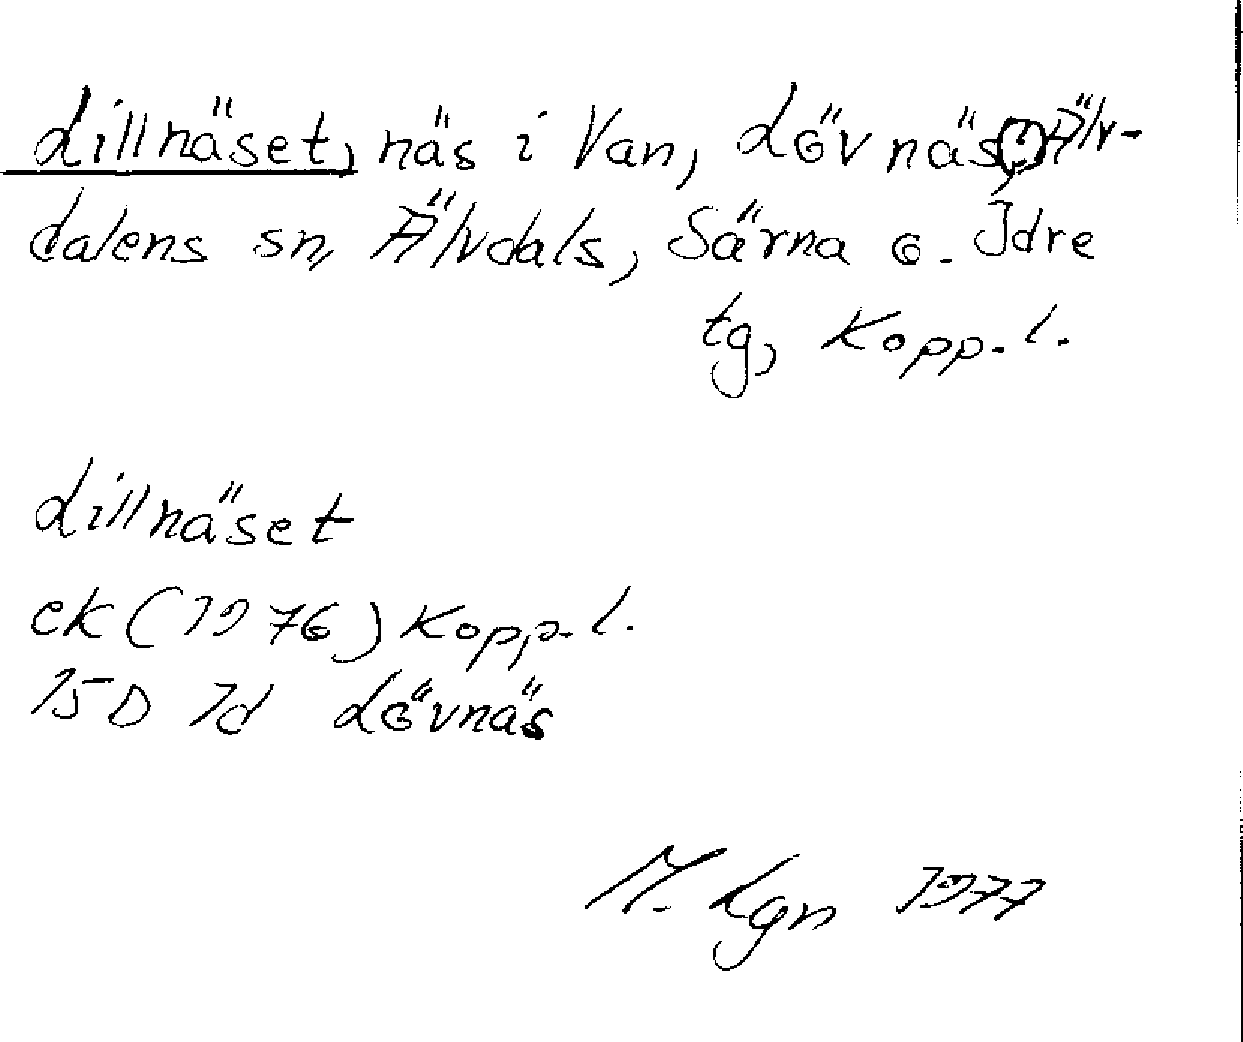 Lillnäset, näs i Van, Lövnäs, Älv-
dalens sn, Älvdals, Särna o. Idre
tg, Kopp. l.
Lillnäset
ek (1976) Kopp. l.
15D 7d Lövnäs
M. Lgn 1977